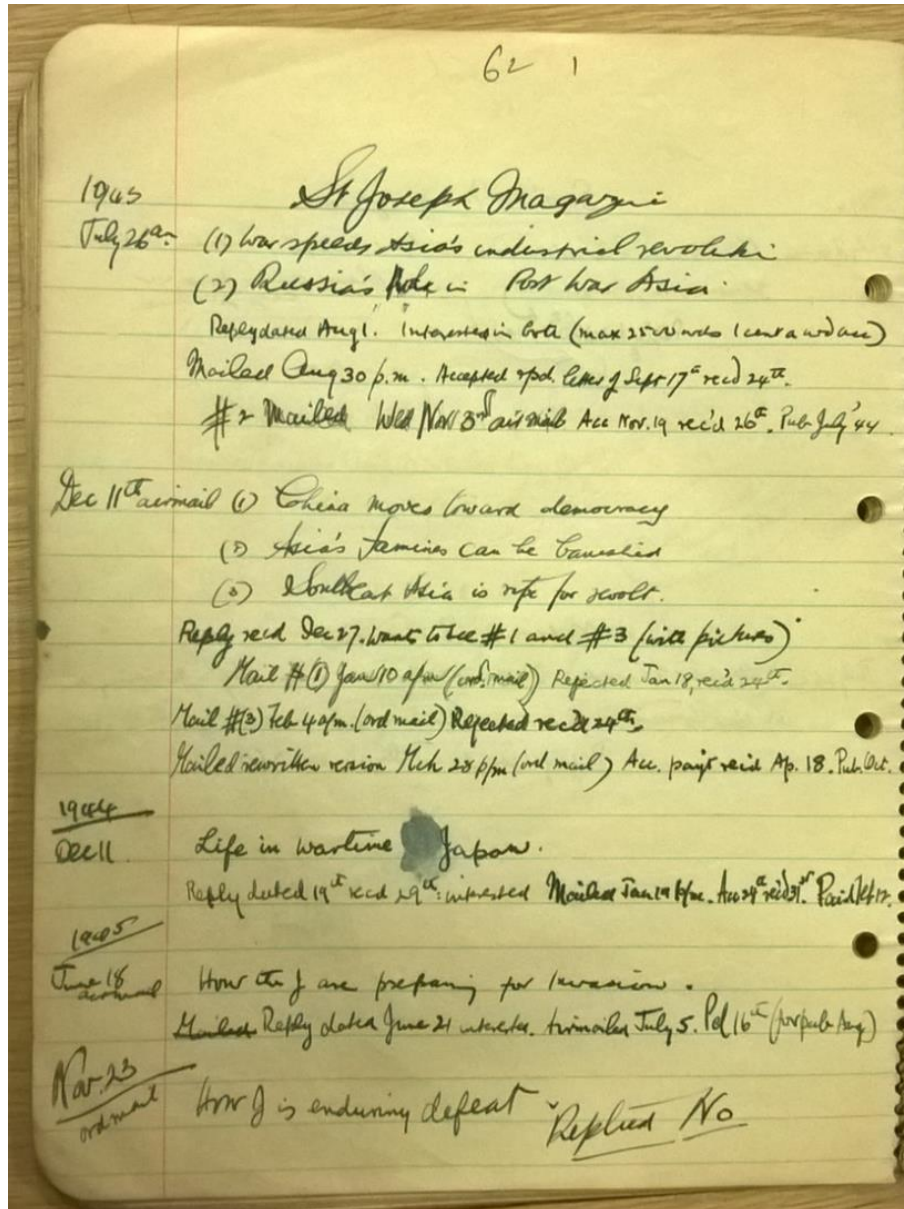 62 1
St Joseph Magazine
July 26
(1) War speeds Asia's industrial revolution
(2) Russia's Role in Post War Asia.
Reply dated Aug 1. Interested in both (max 2500 wds 1 cent a wd acc)
Mailed Aug 30 p.m. Accepted letter of Sept 17th rec'd 24th.
#2 Mailed Wed Nov 3rd airmail Acc Nov. 19 rec'd 26th. Pub July '44
Dec 11th airmail (1) China moves toward democracy
(2) Asia's famines can be banished
(3) Southeast Asia is ripe for revolt.
Reply recd Dec 27. Wants to see #1 and #3 (with pictures)
Mail #(1) Jan 10 (ord. mail) Rejected Jan 18, rec'd 24th.
Mail #(3) Feb 4 (ord mail) Rejected rec'd 24th.
Mailed rewritten version Mch 28 p/m (ord mail) Acc. paymt rec'd Ap. 18. Pub. Oct.
1944
Dec 11 Life in wartime Japan.
Reply dated 19th recd 29th: interested Mailed Jan 19 p/m. Acc 29th rec'd 31st Paid
1945
June 18 airmail How the J are preparing for Invasion.
Mailed Reply dated June 21 interested. Airmailed July 5. Pd 16th (for pub Aug)
Nov. 23 ord mail How J is enduring defeat Replied No